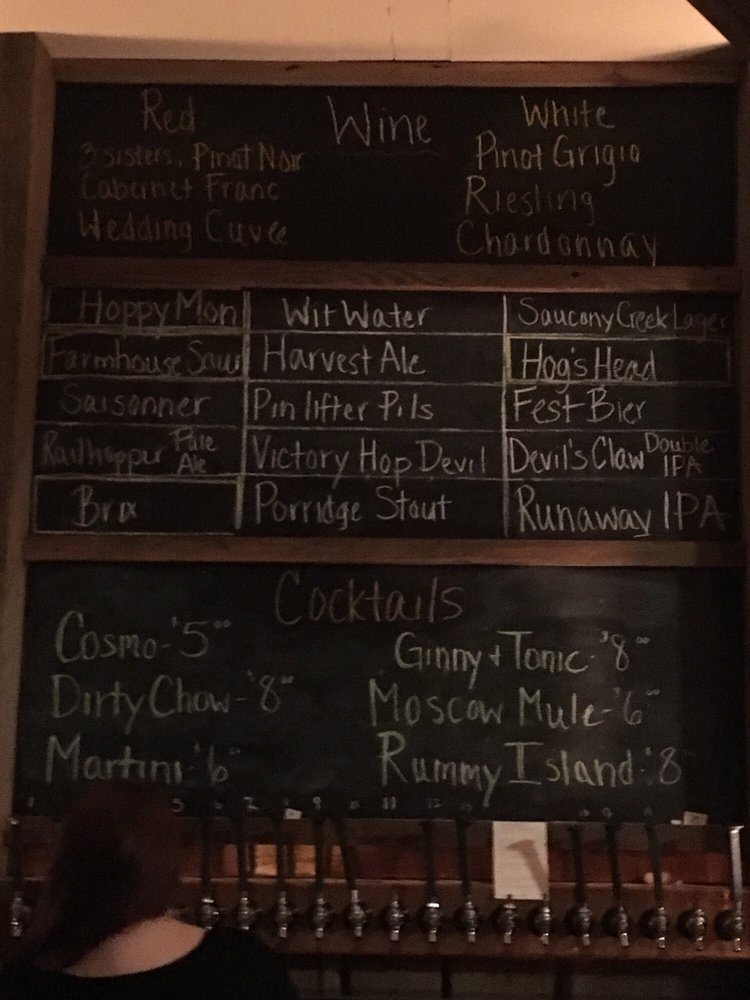 Wine
Red
3 sisters, Pinot Noir
Cabernet Franc
Wedding Cuvee
White
Pinot Grigio
Riesling
Chardonnay
Hoppy Mon
Wit Water
Saucony Creek Lager
Farmhouse Saur
Harvest Ale
Hog's Head
Saisonner
Pinlifter Pils
Fest Bier
Railhopper Pale Ale
Victory Hop Devil
Devil's Claw Double IPA
Brix
Porridge Stout
Runaway IPA
Cocktails
Cosmo-$5⁰⁰
Ginny + Tonic-$8⁰⁰
Dirty Chow-$8⁰⁰
Moscow Mule-$6⁰⁰
Martini-$6⁰⁰
Rummy Island-$8
7 9 11